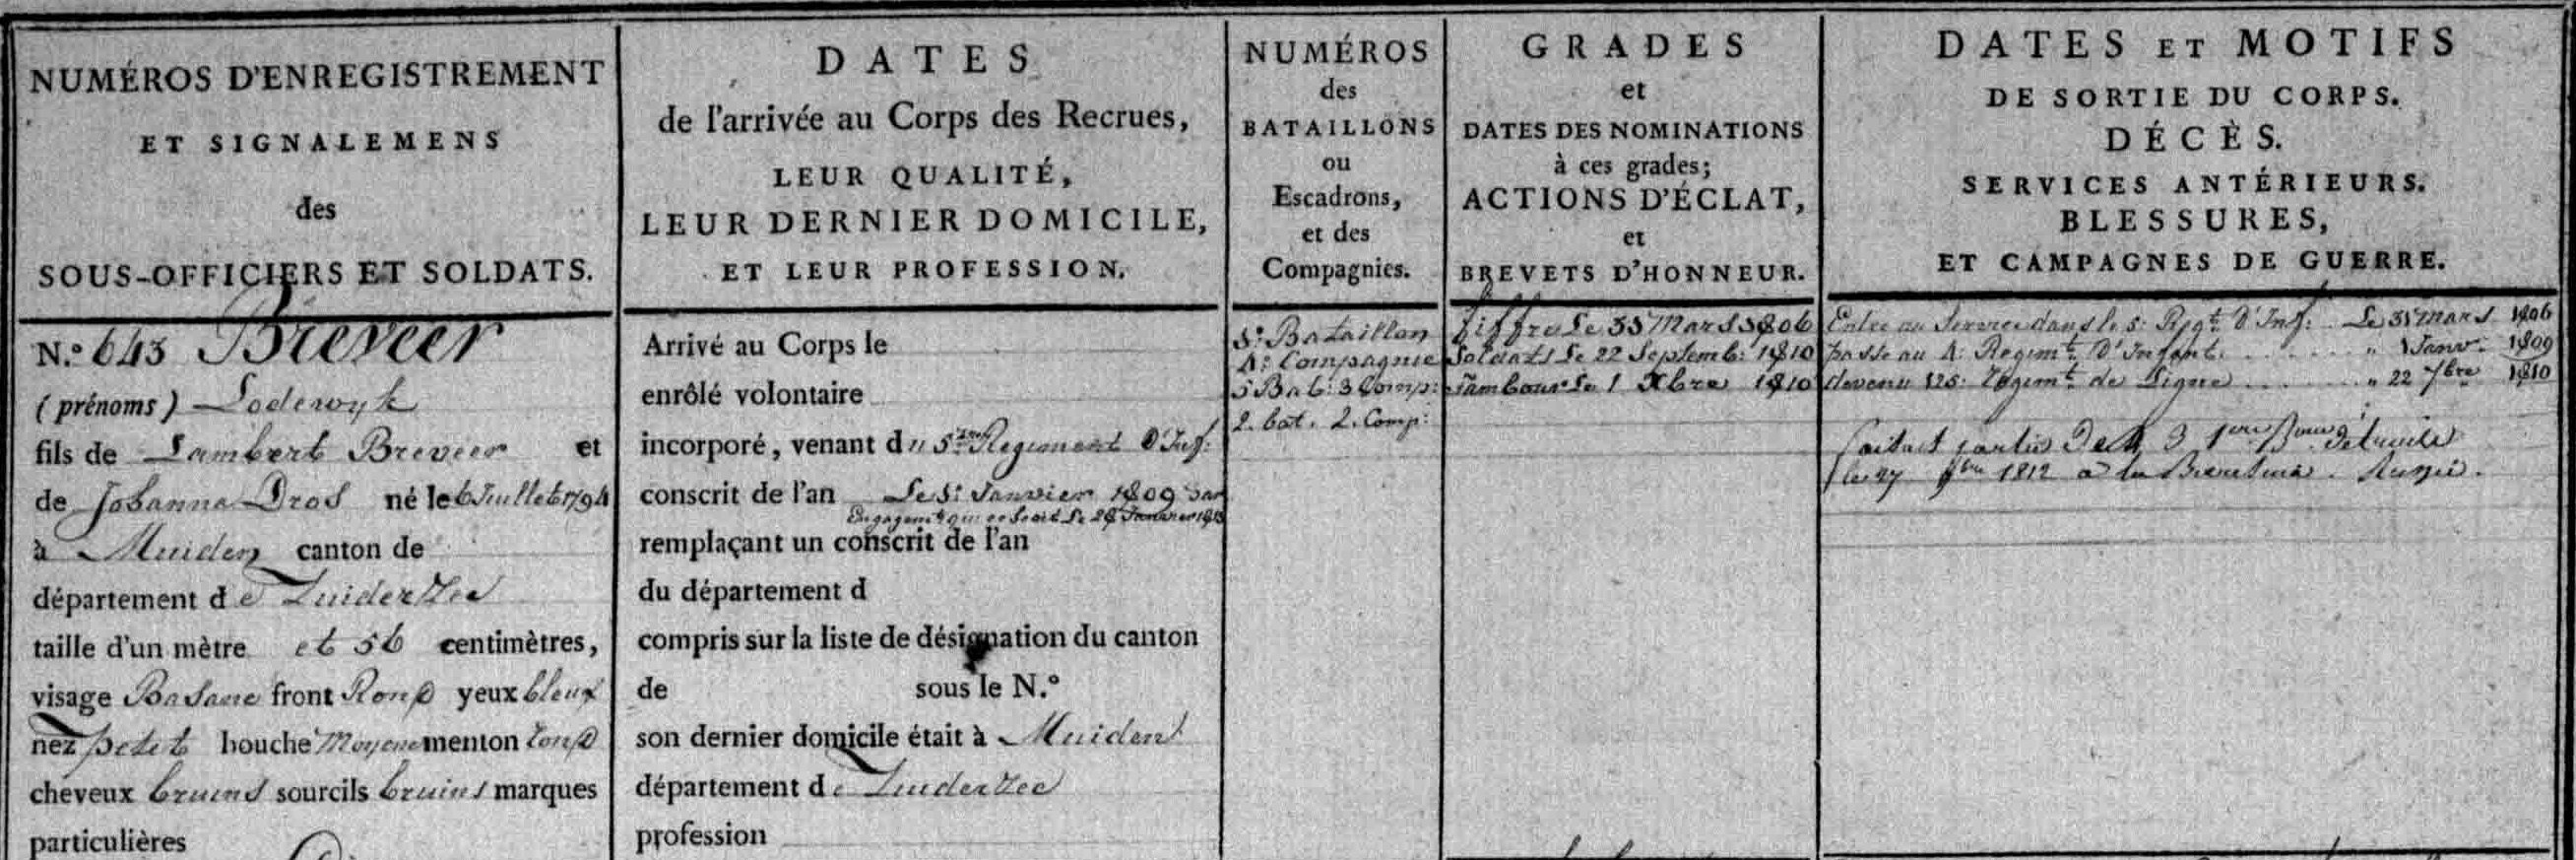 NUMÉROS D'ENREGISTREMENT
ET SIGNALEMENS
des
SOUS-OFFICIERS ET SOLDATS.
N.° 643 Breveer
(prénoms) Lodewyk
fils de Lambert Breveer et
de Johanna Dros né le 6 Juillet 1794
à Muiden canton de
département de Zuiderzee
taille d'un mètre et 56 centimètres,
visage Basane front Rond yeux bleux
nez petit bouche Moyene menton rond
cheveux bruins sourcils bruins marques
particulières
DATES
de l'arrivée au Corps des Recrues,
LEUR QUALITÉ,
LEUR DERNIER DOMICILE,
ET LEUR PROFESSION.
Arrivé au Corps le
enrôlé volontaire
incorporé, venant du 5me Regiment D'Inf:
conscrit de l'an Le 1: Janvier 1809 par
remplaçant un conscrit de l'an
du département d
compris sur la liste de désignation du canton
de sous le N.°
son dernier domicile était à Muiden
département de Zuiderzee
profession
NUMÉROS
des
BATAILLONS
ou
Escadrons,
et des
Compagnies.
5: Bataillon
4: Compagnie
5 Bat: 3 Comp:
2. bat. 2. Comp:
GRADES
et
DATES DES NOMINATIONS
à ces grades;
ACTIONS D'ÉCLAT,
et
BREVETS D'HONNEUR.
fiffre Le 31 Mars 1806
Soldats Le 22 Septemb: 1810
Tambour Le 1 Xbre 1810
DATES ET MOTIFS
DE SORTIE DU CORPS.
DÉCÈS.
SERVICES ANTÉRIEURS.
BLESSURES,
ET CAMPAGNES DE GUERRE.
Entre au Service dans le 5: Regt. D'Inf: Le 31 mars 1806
passe au 4: Regimt. D'Infant. " 1 Janv. 1809
devenu 125: Regimt. de Ligne " 22 7bre 1810
faisant partie des 3 1ers Bons détruits
le 27 9bre 1812 a la Beresina. Russie.